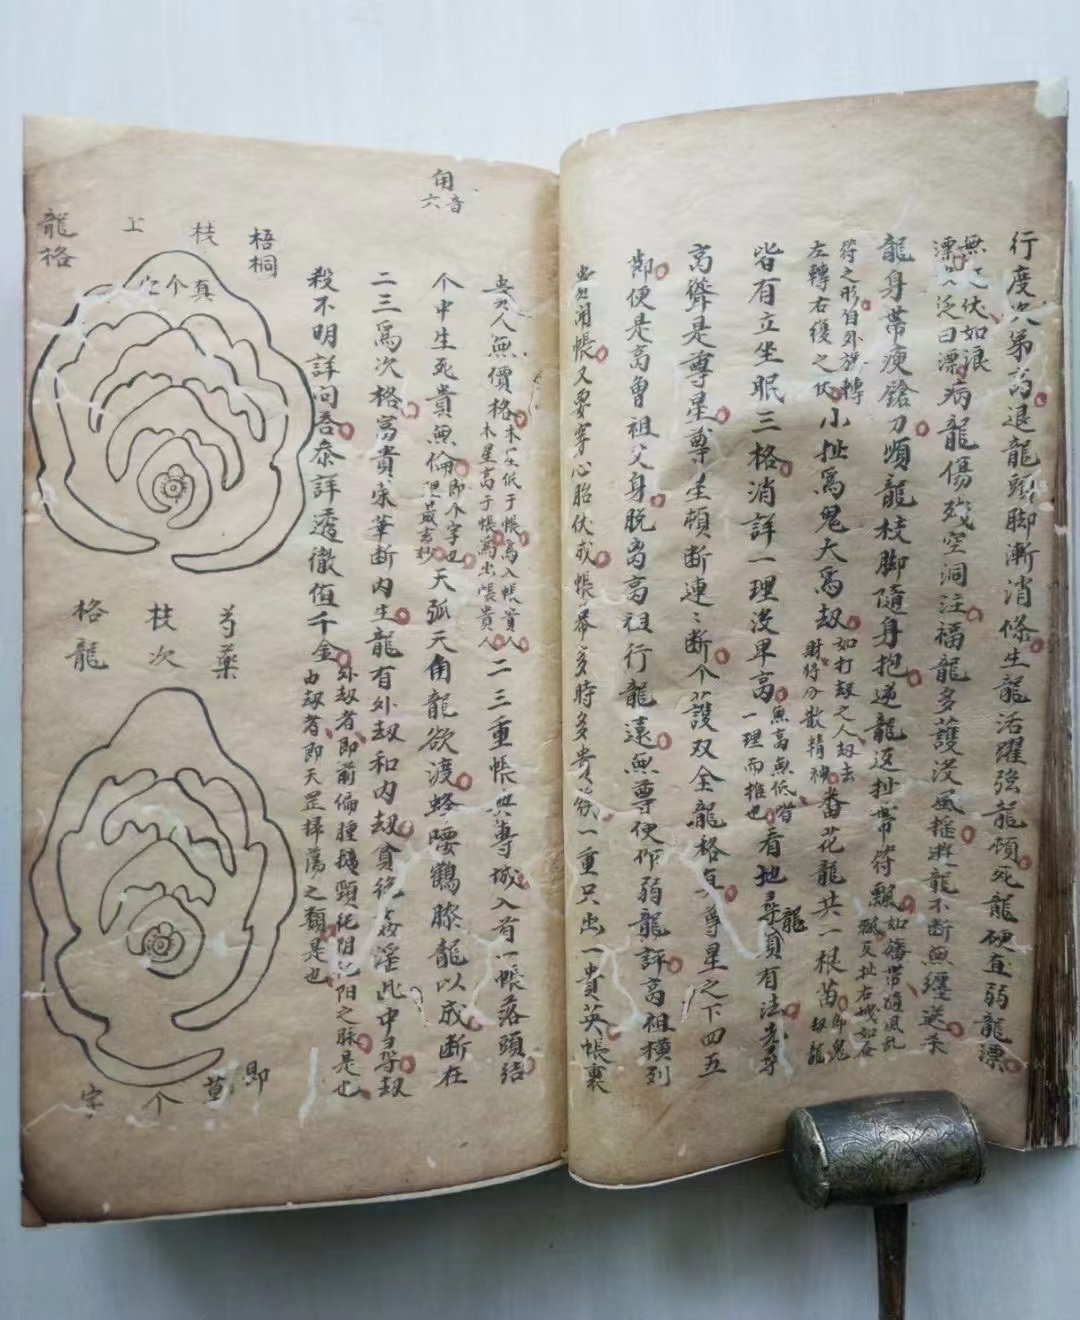 行度次第葯退龍頭脚漸消條生龍活躍強龍順死龍硬直弱龍漂
無起伏如浪
漂之泛曰漂
病龍傷殘空洞注福龍多護沒風搖遊龍不断無纏送
龍身帶瘐鎗刀順龍枝脚隨身抱逆龍返扯帶符飄
如絲帶隨風乱
符之形自外旋轉
左轉右復之伏
小扯爲鬼大爲刼
如打刼之人刼去
財將分散精神
番花龍共一根苗
即鬼
刼龍
皆有立坐眠三格消詳一理沒卑高
無高無低皆
一理而推也
看地尋龍貟有法先尋
高聳是尊星尊生頓断連〻断个護双全龍格有尊星之下四五
節便是高曽祖父身脱离高祖行龍遠無尊便作弱龍評高祖横列
出開帳又要穿心胎伏成帳幕多時多貴一重只出一貴英帳裏
角
六音
貴人無價格
木星低于帳爲入帳貴人
木星高于帳爲出帳貴人
二三重帳與尊城入首一帳落頭結
个中生死貴無倫
即个字也
理最玄妙
天弧天角龍欲渡蜂腰鶴膝龍以成断在
二三爲次格富貴荣華断内生龍有外刼和内刼貧絶姦淫此中尋刼
殺不明詳问吾叅詳透徹值千金
外刼者即前偏腫
頸绝阳阳之脉是也
内刼者即天罡掃蕩之類是也
梧桐
枝
上
龍格
真个字
芍藥
枝次
格龍
即
草
个
字